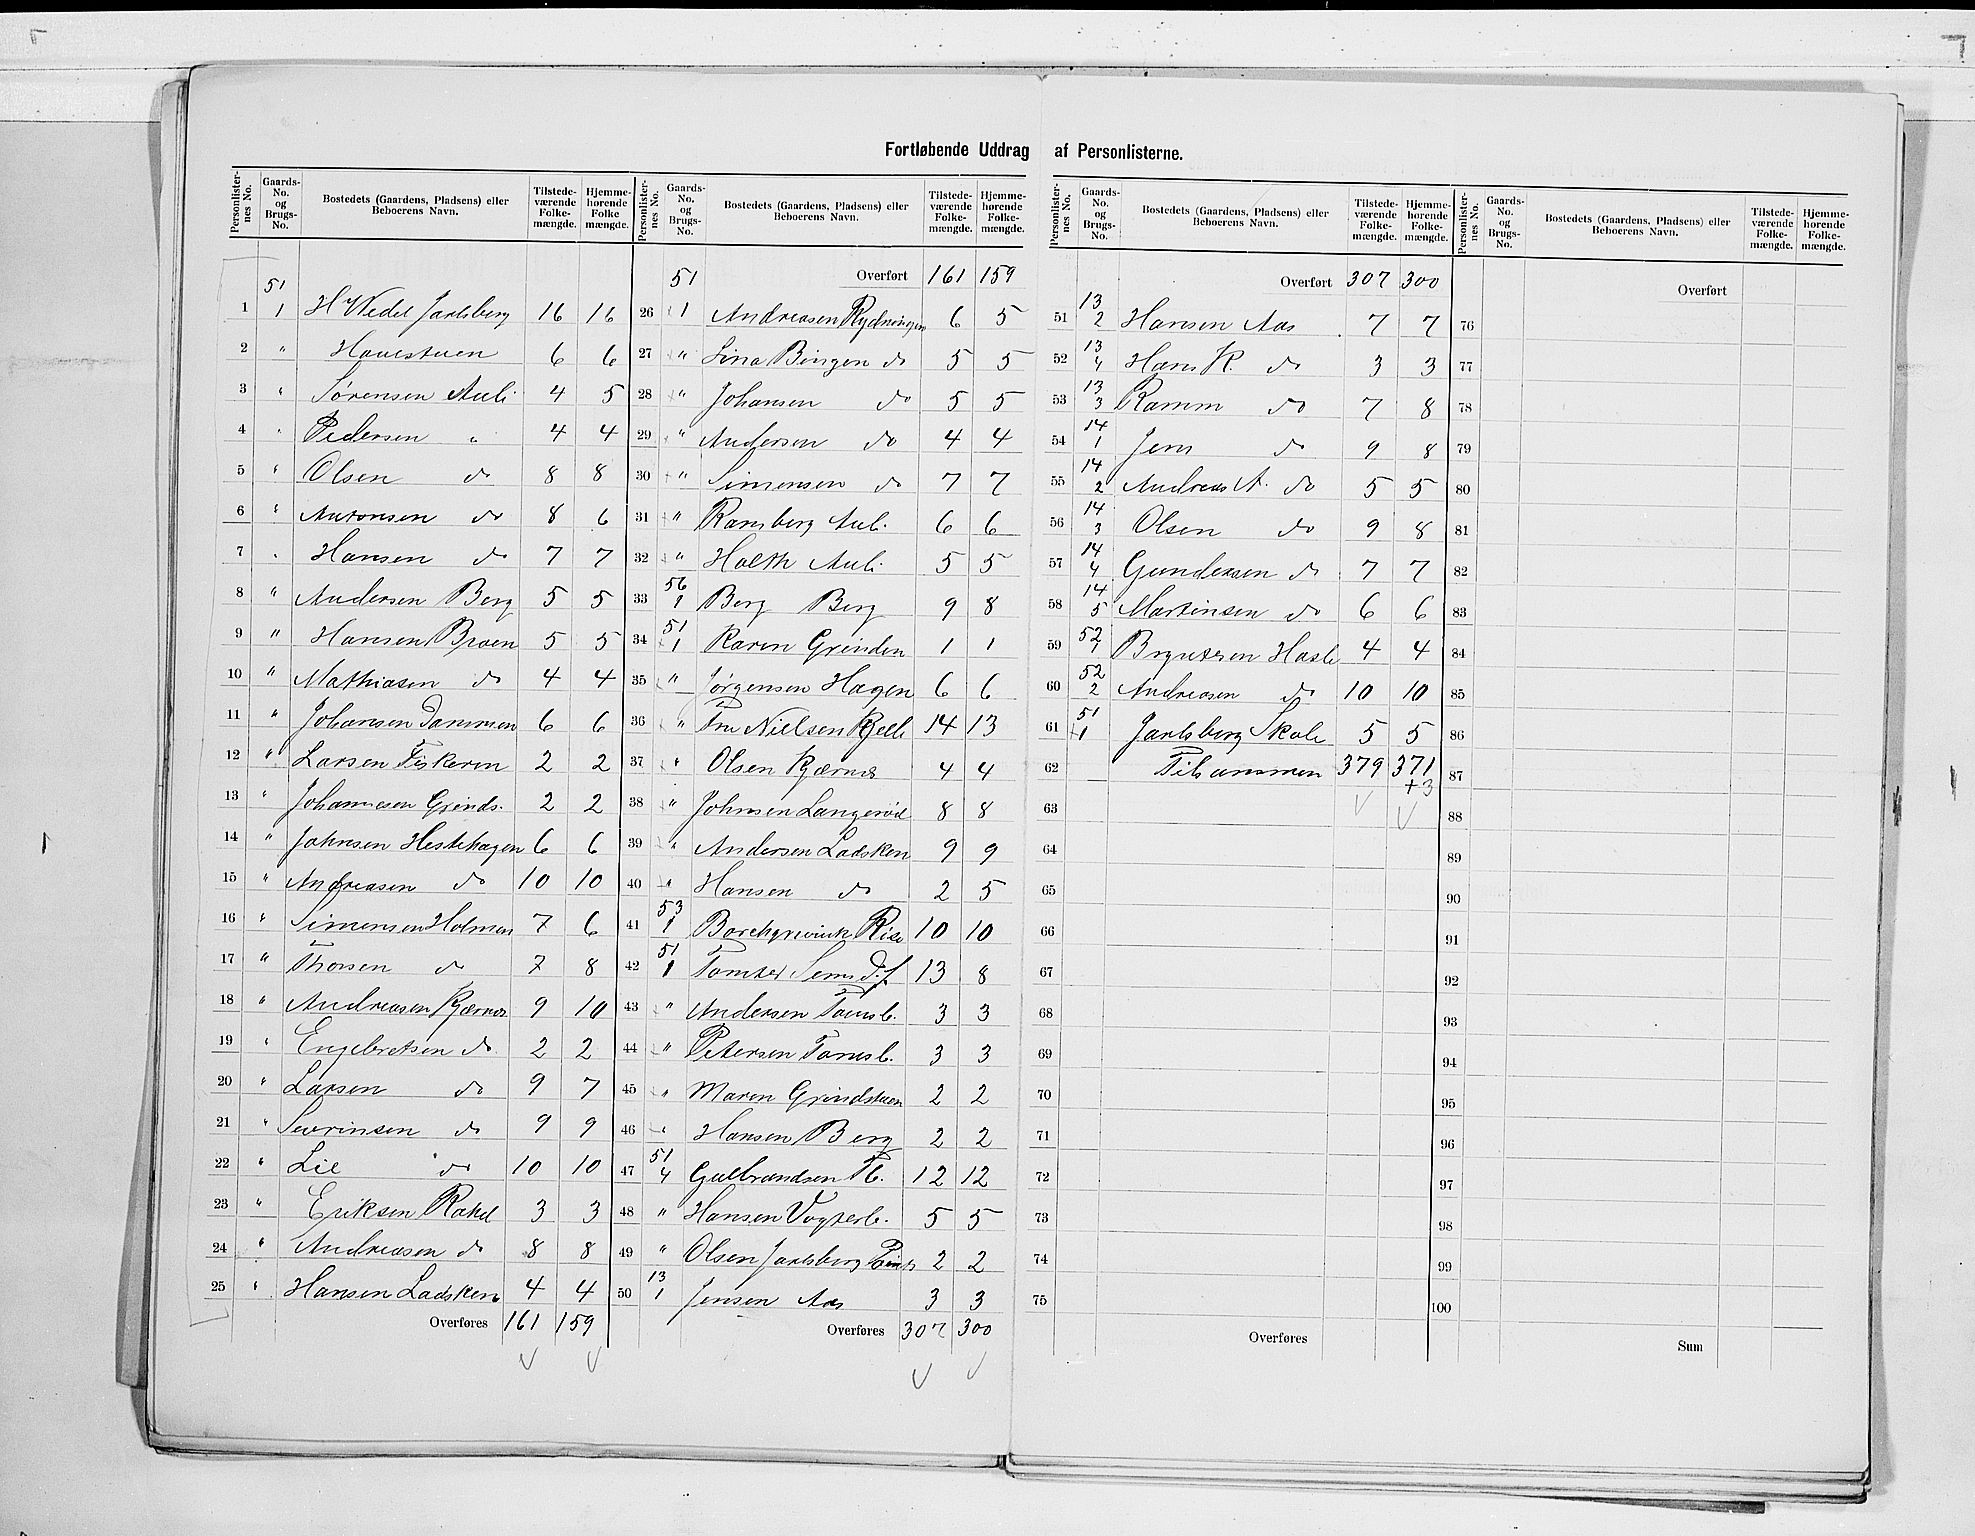 Fortløbende Uddrag af Personlisterne.
Personlisternes No. Gaards-No. og Brugs-No. Bostedets (Gaardens, Pladsens) eller Beboerens Navn. Tilstedeværende Folkemængde. Hjemmehørende Folkemængde.
51
1 1 H Wedel Jarlsberg 16 16
2 " Havestuen 6 6
3 " Sørensen Auli 4 5
4 " Pedersen " 4 4
5 " Olsen do 8 8
6 " Antonsen do 8 6
7 " Hansen do 7 7
8 " Andersen Berg 5 5
9 " Hansen Braen 5 5
10 " Mathiasen do 4 4
11 " Johansen Dammen 6 6
12 " Larsen Fiskeren 2 2
13 " Johannesen Grinds. 2 2
14 " Johnsen Hestehagen 6 6
15 " Andreasen do 10 10
16 " Simensen Holmen 7 6
17 " Thorsen do 7 8
18 " Andreasen Kjærnæs 9 10
19 " Engebretsen do 2 2
20 " Larsen do 9 7
21 " Severinsen do 9 9
22 " Lie do 10 10
23 " Eriksen Rakel 3 3
24 " Andreasen do 8 8
25 " Hansen Ladsken 4 4
Overføres 161 159
Personlisternes No. Gaards-No. og Brugs-No. Bostedets (Gaardens, Pladsens) eller Beboerens Navn. Tilstedeværende Folkemængde. Hjemmehørende Folkemængde.
51 Overført 161 159
26 1 Andreasen Rydningen 6 5
27 " Lina Bingen do 5 5
28 " Johansen do 5 5
29 " Andersen do 4 4
30 " Simensen do 7 7
31 " Ramberg Auli. 6 6
32 " Holth Auli. 5 5
33 56 1 Berg Berg 9 8
34 51 1 Karen Grinden 1 1
35 " Jørgensen Hagen 6 6
36 " Fru Nielsen Kjelle 14 13
37 " Olsen Kjærnæs 4 4
38 " Johnsen Langerød 8 8
39 " Andersen Ladsken 9 9
40 " Hansen do 2 5
41 53 1 Borchgrevink Rise 10 10
42 51 1 Tomter Sem d.f 13 8
43 " Andersen Tømsb. 3 3
44 " Petersen Tømsb. 3 3
45 " Maren Grindstuen 2 2
46 " Hansen Berg 2 2
47 51 4 Gulbrandsen Tb. 12 12
48 " Hansen Vogterb. 5 5
49 " Olsen Jarlsberg 2 2
50 13 1 Jensen Aas 3 3
Overføres 307 300
Personlisternes No. Gaards-No. og Brugs-No. Bostedets (Gaardens, Pladsens) eller Beboerens Navn. Tilstedeværende Folkemængde. Hjemmehørende Folkemængde.
Overført 307 300
51 13 2 Hansen Aas 7 7
52 13 4 Hans K. do 3 3
53 13 3 Ramm do 7 8
54 14 1 Jens do 9 8
55 14 2 Andreas A. do 5 5
56 14 3 Olsen do 9 8
57 14 4 Gundersen do 7 7
58 14 5 Martinsen do 6 6
59 52 1 Bryntesen Hasle 4 4
60 52 2 Andreasen do 10 10
61 51 1 Jarlsberg Skole 5 5
62 Tilsammen 379 371
63 +3
64
65
66
67
68
69
70
71
72
73
74
75
Overføres
Personlisternes No. Gaards-No. og Brugs-No. Bostedets (Gaardens, Pladsens) eller Beboerens Navn. Tilstedeværende Folkemængde. Hjemmehørende Folkemængde.
Overført
76
77
78
79
80
81
82
83
84
85
86
87
88
89
90
91
92
93
94
95
96
97
98
99
100
Sum